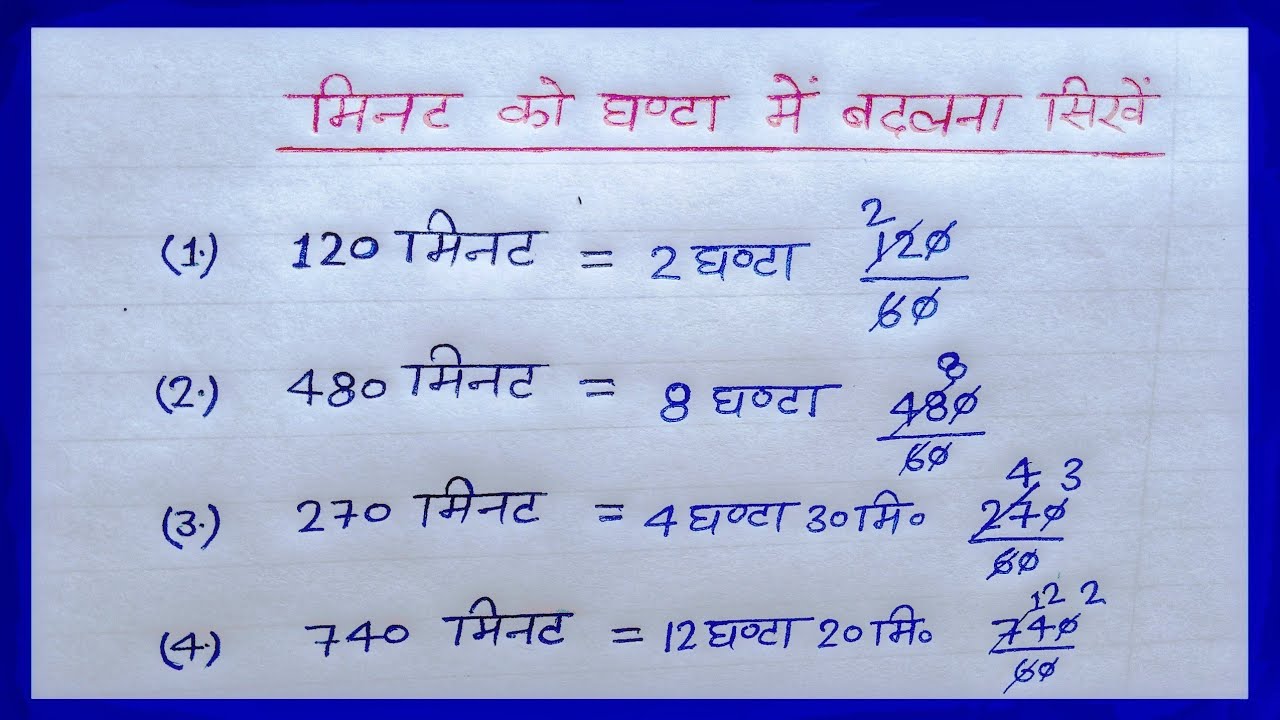 मिनट को घण्टा में बदलना सिखें
(1.) 120 मिनट = 2 घण्टा 2 120/60
(2.) 480 मिनट = 8 घण्टा 8 480/60
(3.) 270 मिनट = 4 घण्टा 30 मि० 4 3 270/60
(4.) 740 मिनट = 12 घण्टा 20 मि० 12 2 740/60